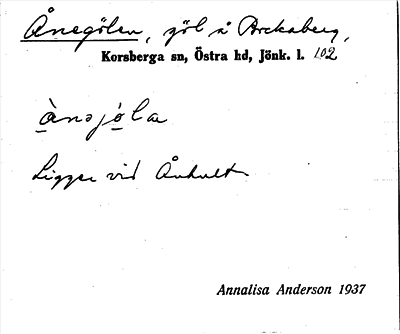 Ånegölen, göl å Bockaberg,
Korsberga sn, Östra hd, Jönk. l. 102
ànəjóla
Ligger vid Ånhult
Annalisa Anderson 1937